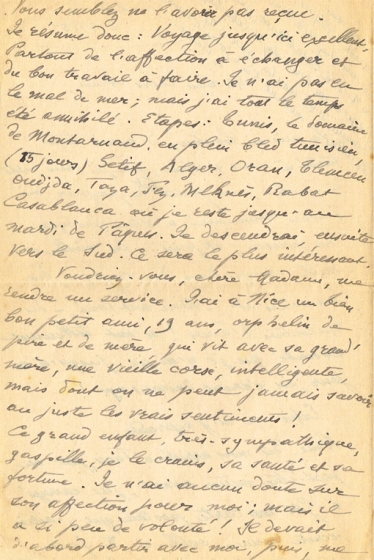 Vous semblez ne l'avoir pas reçue.
Je résume donc : Voyage jusqu'ici excellent,
Partout de l'affection à échanger et
du bon travail à faire. Je n'ai pas eu
le mal de mer ; mais j'ai tout le temps
été Etapes : Tunis, le domaine
de Montarnaud, en plein bled tunisien,
(15 jours) Sétif, Alger, Oran, Tlemcen
Oudjda, Taza, Fez, Meknès, Rabat
Casablanca où je reste jusqu'au
mardi de Pâques. Je descendrai, ensuite
vers le Sud. Ce sera le plus intéressant.
Voudriez-vous, chère Madame, me
rendre un service. J'ai à Nice un bien
bon petit ami, 19 ans, orphelin de
père et de mère qui vit avec sa grand'
mère, une vieille corse, intelligente,
mais dont on ne peut jamais savoir
au juste les vrais sentiments !
Ce grand enfant, très-sympathique,
gaspille, je le crains, sa santé et sa
fortune. Je n'ai aucun doute sur
son affection pour moi ; mais il
a si peu de volonté ! Il devait
d'abord partir avec moi, puis, me